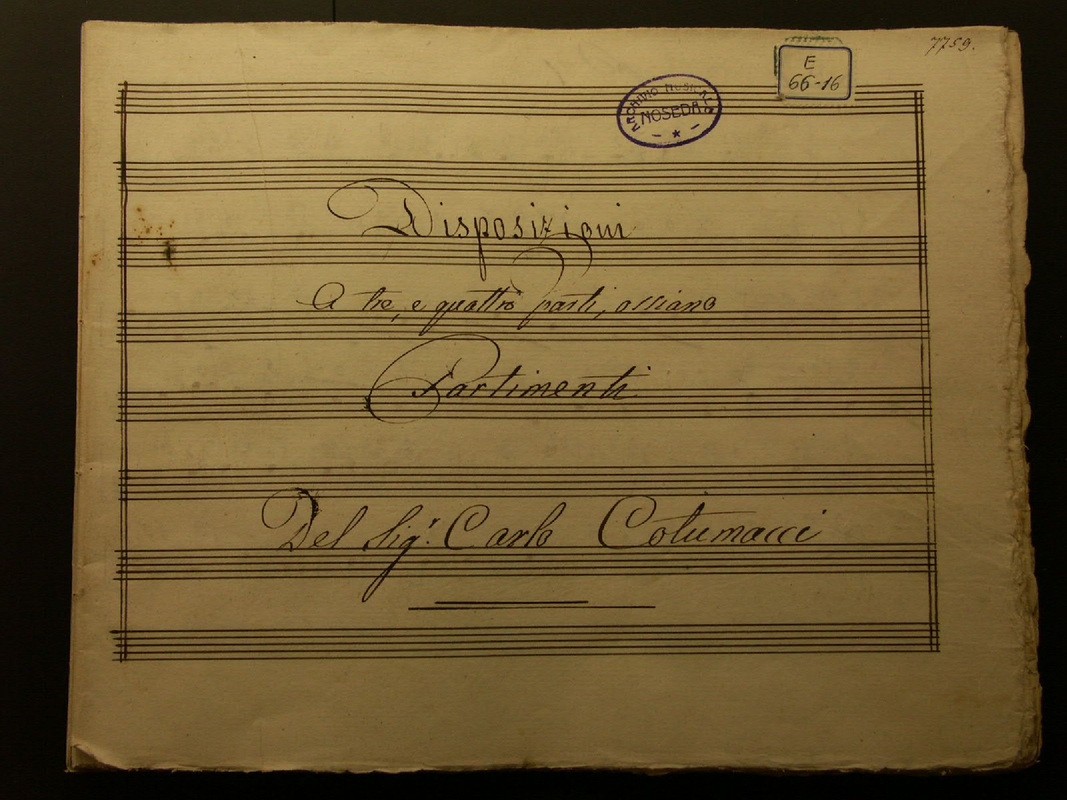 7759.
E
66-16
ARCHIVIO MUSICALE
NOSEDA
Disposizioni
A tre, e quattro parti, ossiano
Partimenti
Del Sig.r Carlo Cotumacci